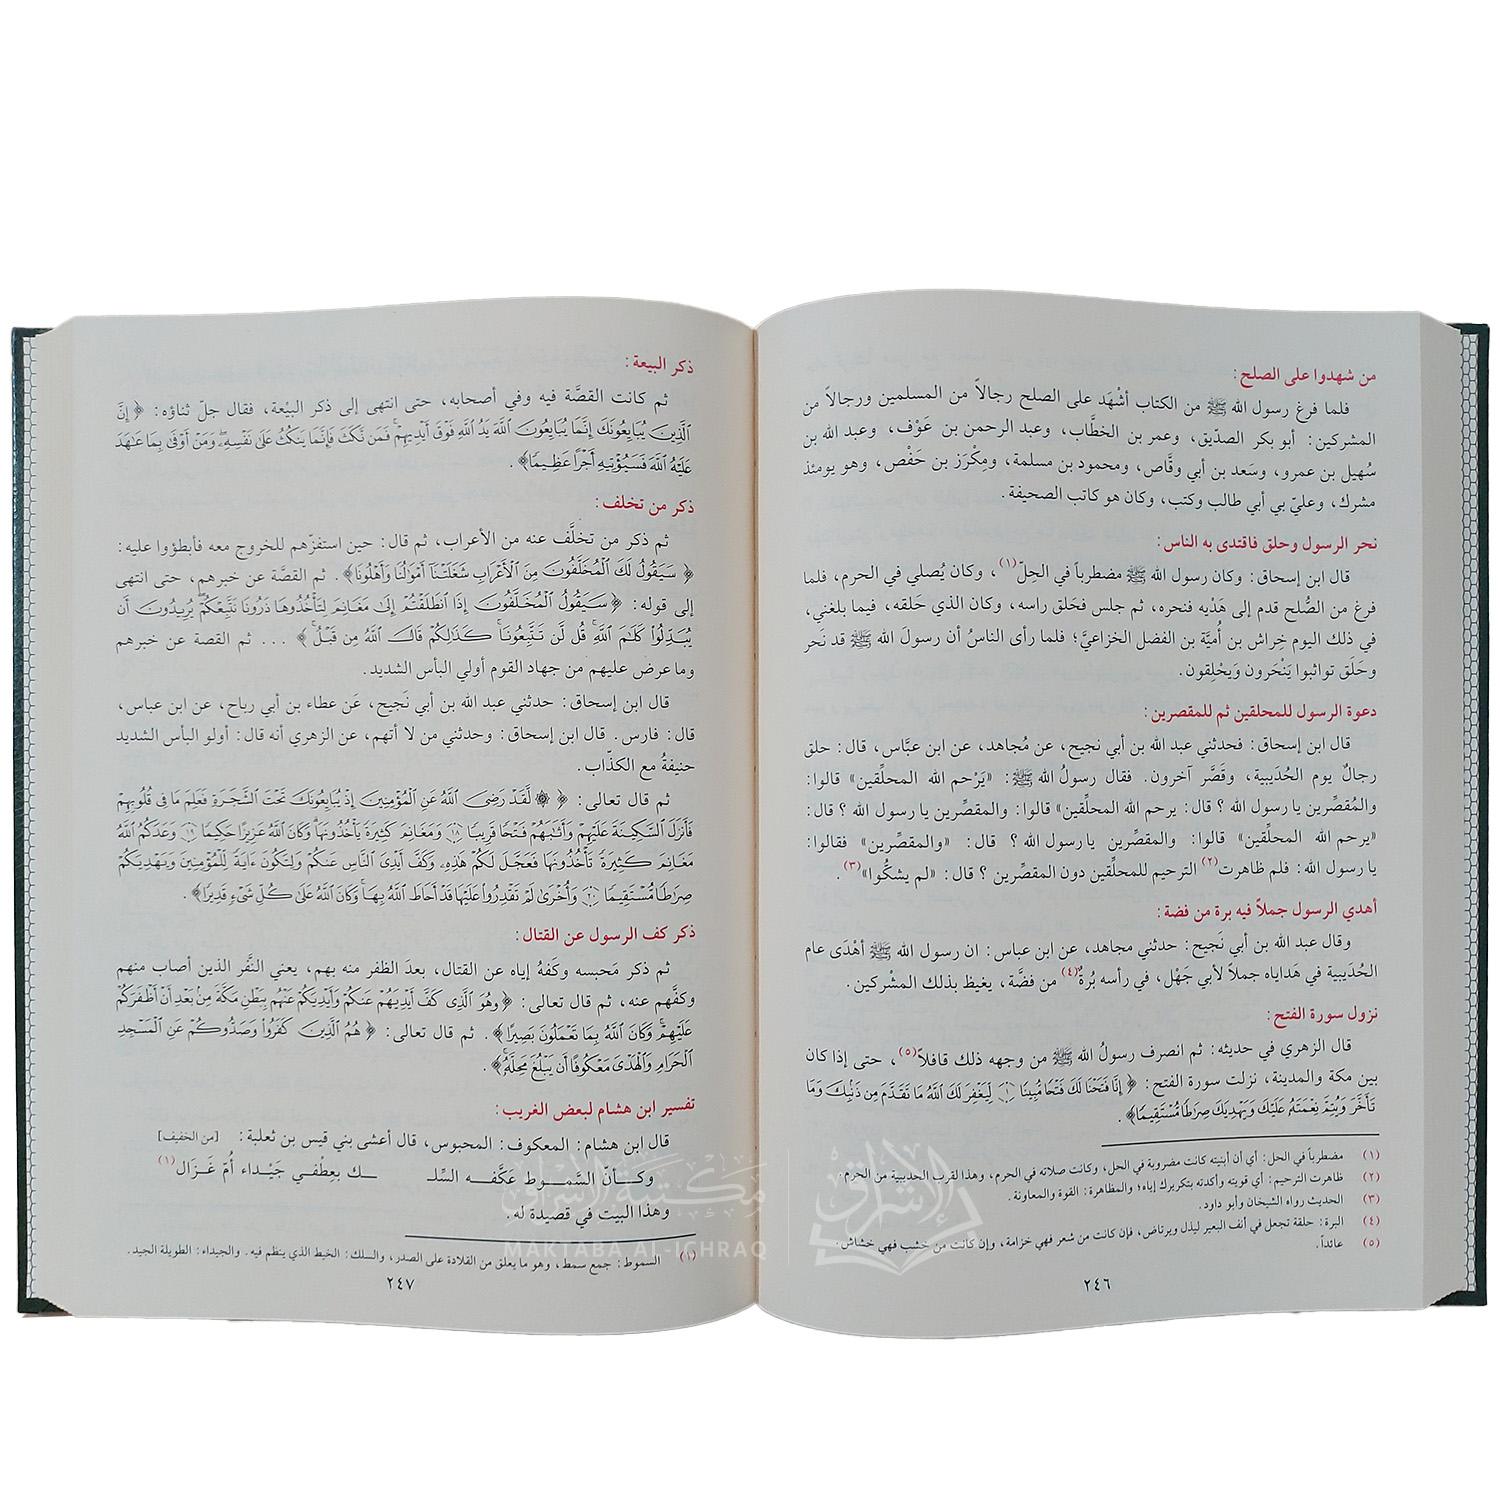 من شهدوا على الصلح :
فلما فرغ رسول الله ﷺ من الكتاب أشْهَد على الصلح رجالاً من المسلمين ورجالاً من
المشركين: أبو بكر الصدّيق، وعمر بن الخطَّاب، وعبد الرحمن بن عَوْف، وعبد الله بن
سُهيل بن عمرو، وسَعد بن أبي وقَّاص، ومحمود بن مسلمة، ومِكْرَز بن حَفْص، وهو يومئذ
مشرك، وعليّ بي أبي طالب وكتب، وكان هو كاتب الصحيفة .
نحر الرسول وحلق فاقتدى به الناس:
قال ابن إسحاق: وكان رسول الله ﷺ مضطرباً في الحِلّ(١)، وكان يُصلي في الحرم، فلما
فرغ من الصُّلح قدم إلى هَدْيه فنحره، ثم جلس فحَلق راسه، وكان الذي حَلقه، فيما بلغني،
في ذلك اليوم خِراش بن أُميَّة بن الفضل الخزاعيَّ؛ فلما رأى الناسُ أن رسولَ الله ﷺ قد نَحر
وحَلَق تواثبوا يَنْحَرون وَيَحْلِقون.
دعوة الرسول للمحلقين ثم للمقصرين :
قال ابن إسحاق: فحدثني عبد الله بن أبي نجيح، عن مُجاهد، عن ابن عبَّاس، قال: حلق
رجالٌ يوم الحُدَيبية، وقَصَّر آخرون. فقال رسولُ الله ﷺ: «يَرْحم الله المحلِّقين» قالوا:
والمُقصِّرين يا رسول الله ؟ قال: يرحم الله المحلِّقين» قالوا: والمقصِّرين يا رسول الله ؟ قال:
«يرحم الله المحلِّقين» قالوا: والمقصِّرين يا رسول الله ؟ قال: «والمقصِّرين» فقالوا:
يا رسول الله: فلم ظاهرت(٢) الترحيم للمحلِّقين دون المقصِّرين ؟ قال: «لم يشكُّوا»(٣) .
أهدي الرسول جملاً فيه برة من فضة:
وقال عبد الله بن أبي نَجيح: حدثني مجاهد، عن ابن عباس: ان رسول الله ﷺ أهْدَى عام
الحُدَيبية في هَداياه جملاً لأبي جَهْل، في رأسه بُرةٌ(٤) من فضَّة، يغيظ بذلك المشْركين.
نزول سورة الفتح:
قال الزهري في حديثه: ثم انصرف رسولُ الله ﷺ من وجهه ذلك قافلاً(٥)، حتى إذا كان
بين مكة والمدينة، نزلت سورة الفتح: ﴿ إِنَّا فَتَحْنَا لَكَ فَتْحًا مُّبِينًا ۝١ لِّيَغْفِرَ لَكَ ٱللَّهُ مَا تَقَدَّمَ مِن ذَنۢبِكَ وَمَا
تَأَخَّرَ وَيُتِمَّ نِعْمَتَهُۥ عَلَيْكَ وَيَهْدِيَكَ صِرَٰطًا مُّسْتَقِيمًا﴾ .
(١) مضطرباً في الحل: أي أن أبنيته كانت مضروبة في الحل، وكانت صلاته في الحرم، وهذا لقرب الحديبية من الحرم.
(٢) ظاهرت الترحيم: أي قويته وأكدته بتكريرك إياه؛ والمظاهرة: القوة والمعاونة.
(٣) الحديث رواه الشيخان وأبو داود.
(٤) البرة: حلقة تجعل في أنف البعير ليذل ويرتاض، فإن كانت من شعر فهي خزامة، وإن كانت من خشب فهي خشاش.
(٥) عائداً.
٢٤٦
ذكر البيعة :
ثم كانت القصَّة فيه وفي أصحابه، حتى انتهى إلى ذكر البيْعة، فقال جلّ ثناؤه: ﴿ إِنَّ
ٱلَّذِينَ يُبَايِعُونَكَ إِنَّمَا يُبَايِعُونَ ٱللَّهَ يَدُ ٱللَّهِ فَوْقَ أَيْدِيهِمْ ۚ فَمَن نَّكَثَ فَإِنَّمَا يَنكُثُ عَلَىٰ نَفْسِهِۦ ۖ وَمَنْ أَوْفَىٰ بِمَا عَـٰهَدَ
عَلَيْهُ ٱللَّهَ فَسَيُؤْتِيهِ أَجْرًا عَظِيمًا﴾ .
ذكر من تخلف :
ثم ذكر من تخلَّف عنه من الأعراب، ثم قال: حين استفزّهم للخروج معه فأبطؤوا عليه:
﴿ سَيَقُولُ لَكَ ٱلْمُخَلَّفُونَ مِنَ ٱلْأَعْرَابِ شَغَلَتْنَآ أَمْوَٰلُنَا وَأَهْلُونَا﴾ . ثم القصَّة عن خبرهم، حتى انتهى
إلى قوله: ﴿ سَيَقُولُ ٱلْمُخَلَّفُونَ إِذَا ٱنطَلَقْتُمْ إِلَىٰ مَغَانِمَ لِتَأْخُذُوهَا ذَرُونَا نَتَّبِعْكُمْ ۖ يُرِيدُونَ أَن
يُبَدِّلُوا۟ كَلَـٰمَ ٱللَّهِ ۚ قُل لَّن تَتَّبِعُونَا ۖ كَذَٰلِكُمْ قَالَ ٱللَّهُ مِن قَبْلُ ۖ ﴾ ... ثم القصة عن خبرهم
وما عرض عليهم من جهاد القوم أولي البأس الشديد.
قال ابن إسحاق: حدثني عبد الله بن أبي نَجيح، عَن عطاء بن أبي رباح، عن ابن عباس،
قال: فارس. قال ابن إسحاق: وحدثني من لا أتهم، عن الزهري أنه قال: أولو البأس الشديد
حنيفةُ مع الكذّاب.
ثم قال تعالى: ﴿ ۞ لَّقَدْ رَضِىَ ٱللَّهُ عَنِ ٱلْمُؤْمِنِينَ إِذْ يُبَايِعُونَكَ تَحْتَ ٱلشَّجَرَةِ فَعَلِمَ مَا فِى قُلُوبِهِمْ
فَأَنزَلَ ٱلسَّكِينَةَ عَلَيْهِمْ وَأَثَـٰبَهُمْ فَتْحًا قَرِيبًا ۝١٨ وَمَغَانِمَ كَثِيرَةً يَأْخُذُونَهَا ۗ وَكَانَ ٱللَّهُ عَزِيزًا حَكِيمًا ۝١٩ وَعَدَكُمُ ٱللَّهُ
مَغَانِمَ كَثِيرَةً تَأْخُذُونَهَا فَعَجَّلَ لَكُمْ هَـٰذِهِۦ وَكَفَّ أَيْدِىَ ٱلنَّاسِ عَنكُمْ وَلِتَكُونَ ءَايَةً لِّلْمُؤْمِنِينَ وَيَهْدِيَكُمْ
صِرَٰطًا مُّسْتَقِيمًا ۝٢٠ وَأُخْرَىٰ لَمْ تَقْدِرُوا۟ عَلَيْهَا قَدْ أَحَاطَ ٱللَّهُ بِهَا ۚ وَكَانَ ٱللَّهُ عَلَىٰ كُلِّ شَىْءٍ قَدِيرًا﴾ .
ذكر كف الرسول عن القتال :
ثم ذكر مَحبسه وكَفهُ إياه عن القتال، بعدَ الظفر منه بهم، يعني النَّفر الذين أصاب منهم
وكفَّهم عنه، ثم قال تعالى: ﴿وَهُوَ ٱلَّذِى كَفَّ أَيْدِيَهُمْ عَنكُمْ وَأَيْدِيَكُمْ عَنْهُم بِبَطْنِ مَكَّةَ مِنۢ بَعْدِ أَنْ أَظْفَرَكُمْ
عَلَيْهِمْ ۚ وَكَانَ ٱللَّهُ بِمَا تَعْمَلُونَ بَصِيرًا ﴾ . ثم قال تعالى: ﴿ هُمُ ٱلَّذِينَ كَفَرُوا۟ وَصَدُّوكُمْ عَنِ ٱلْمَسْجِدِ
ٱلْحَرَامِ وَٱلْهَدْىَ مَعْكُوفًا أَن يَبْلُغَ مَحِلَّهُۥ ۚ﴾ .
تفسير ابن هشام لبعض الغريب :
قال ابن هشام: المعكوف: المحبوس، قال أعشى بني قيس بن ثعلبة: [من الخفيف]
وكـأنّ السَّمـوط عَكَّفـه السِّلـ ـك بعِطفـي جَيْـداء أُمّ غَـزال(١)
وهذا البيت في قصيدة له .
(١) السموط: جمع سمط، وهو ما يعلق من القلادة على الصدر، والسلك: الخيط الذي ينظم فيه. والجيداء: الطويلة الجيد.
٢٤٧
مكتبة الإشراق
MAKTABA AL-ICHRAQ
الإشراق